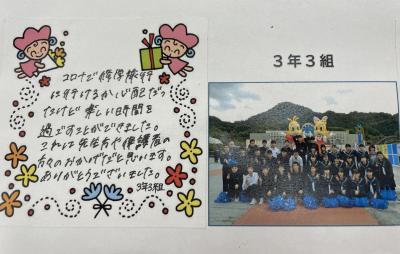 コロナで修学旅行
に行けるか心配だっ
たけど楽しい時間を
過ごすことができました。
これは先生方や保護者の
方々のおかげだと思います。
ありがとうございました。
3年3組
３年３組